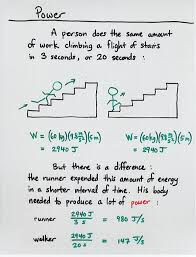 Power
A person does the same amount
of work climbing a flight of stairs
in 3 seconds, or 20 seconds :
W = (60 kg)(9.8 m/s²)(5m)
= 2940 J
W = (60 kg)(9.8 m/s²)(5m)
= 2940 J
But there is a difference :
the runner expended this amount of energy
in a shorter interval of time. His body
needed to produce a lot of power :
runner 2940 J / 3 s = 980 J/s
walker 2940 J / 20 s = 147 J/s